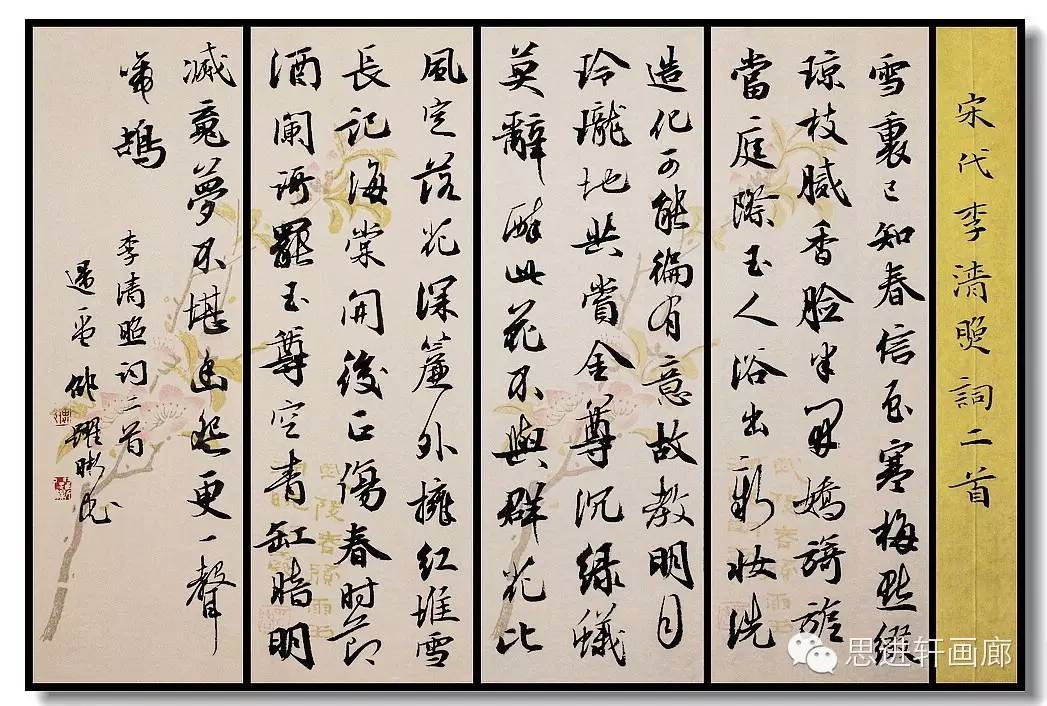 宋代李清照詞二首
雪裏已知春信至寒梅點綴
琼枝膩香臉半開嬌旖旎
當庭際玉人浴出新妝洗
造化可能偏有意故教明月
玲瓏地共賞金尊沉綠蟻
莫辭醉此花不與群花比
風定落花深簾外擁红堆雪
長記海棠開後正傷春时節
酒闌歌罷玉尊空青缸暗明
滅魂夢不堪幽怨更一聲
啼鴂
李清照词二首
思进轩画廊